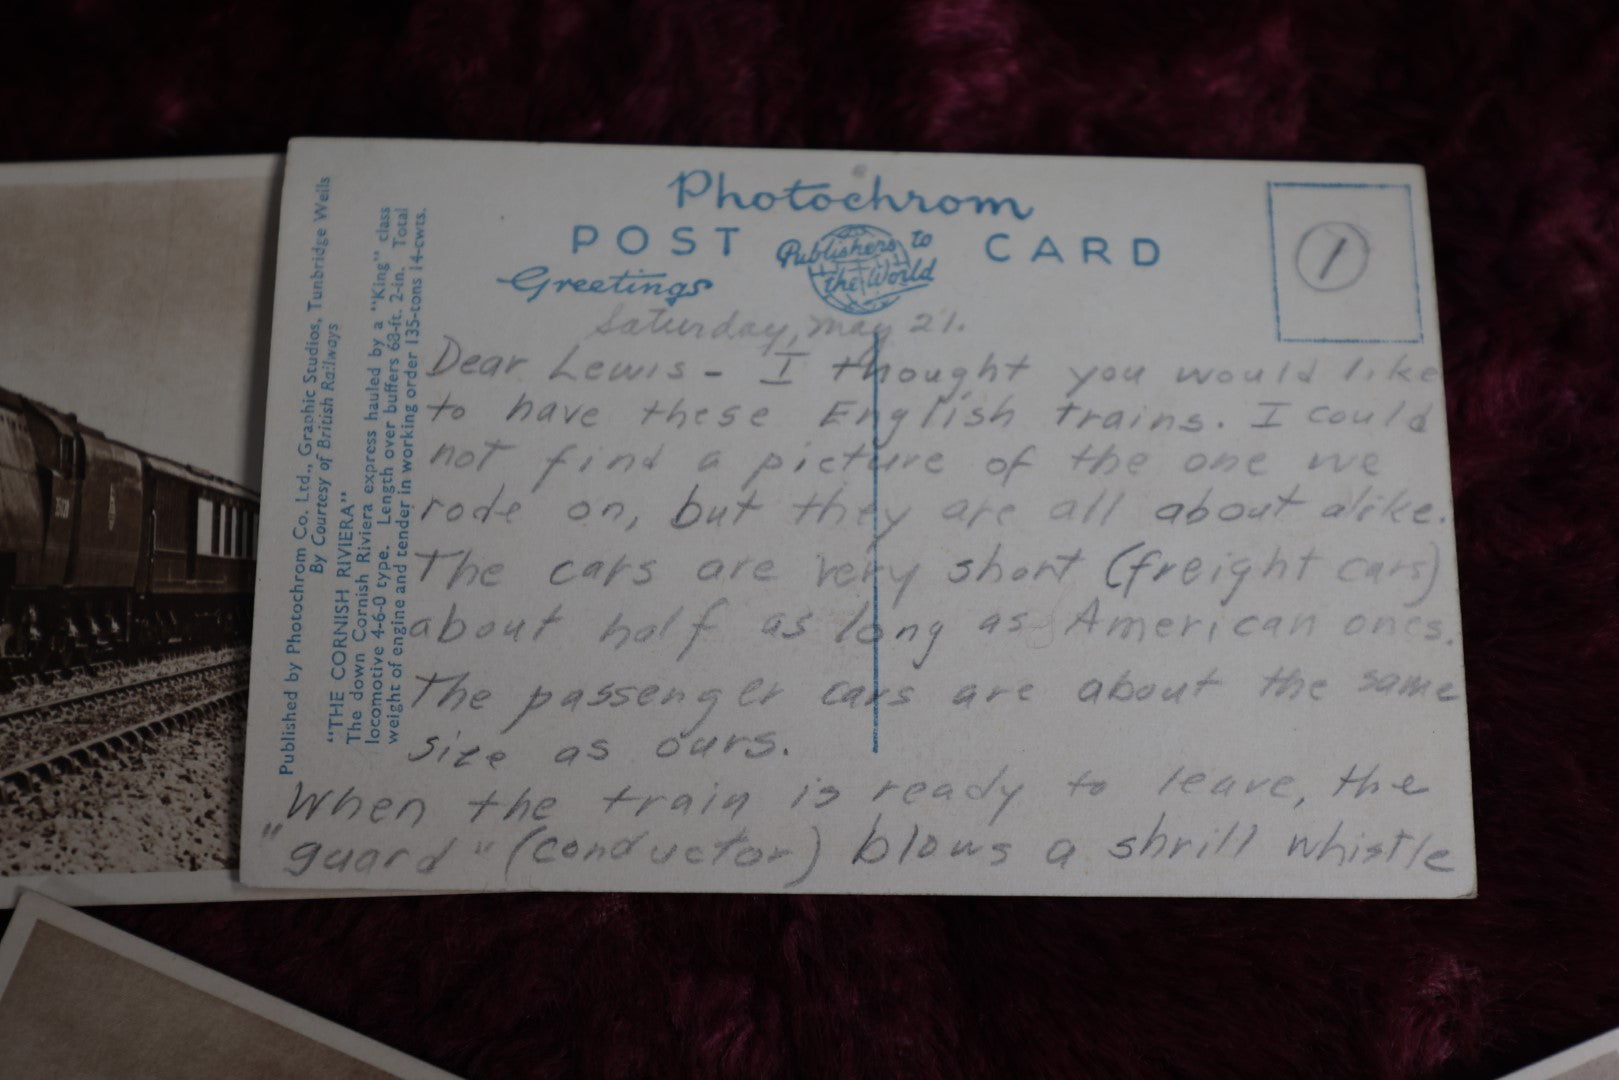 Photochrom
POST CARD
Publishers to
the World
Greetings
1
Published by Photochrom Co. Ltd., Graphic Studios, Tunbridge Wells
By Courtesy of British Railways
"THE CORNISH RIVIERA"
The down Cornish Riviera express hauled by a "King" class
locomotive 4-6-0 type. Length over buffers 68-ft. 2-in. Total
weight of engine and tender in working order 135-tons 14-cwts.
Saturday, May 21.
Dear Lewis - I thought you would like
to have these English trains. I could
not find a picture of the one we
rode on, but they are all about alike.
The cars are very short (freight cars)
about half as long as American ones.
The passenger cars are about the same
size as ours.
When the train is ready to leave, the
"guard" (conductor) blows a shrill whistle